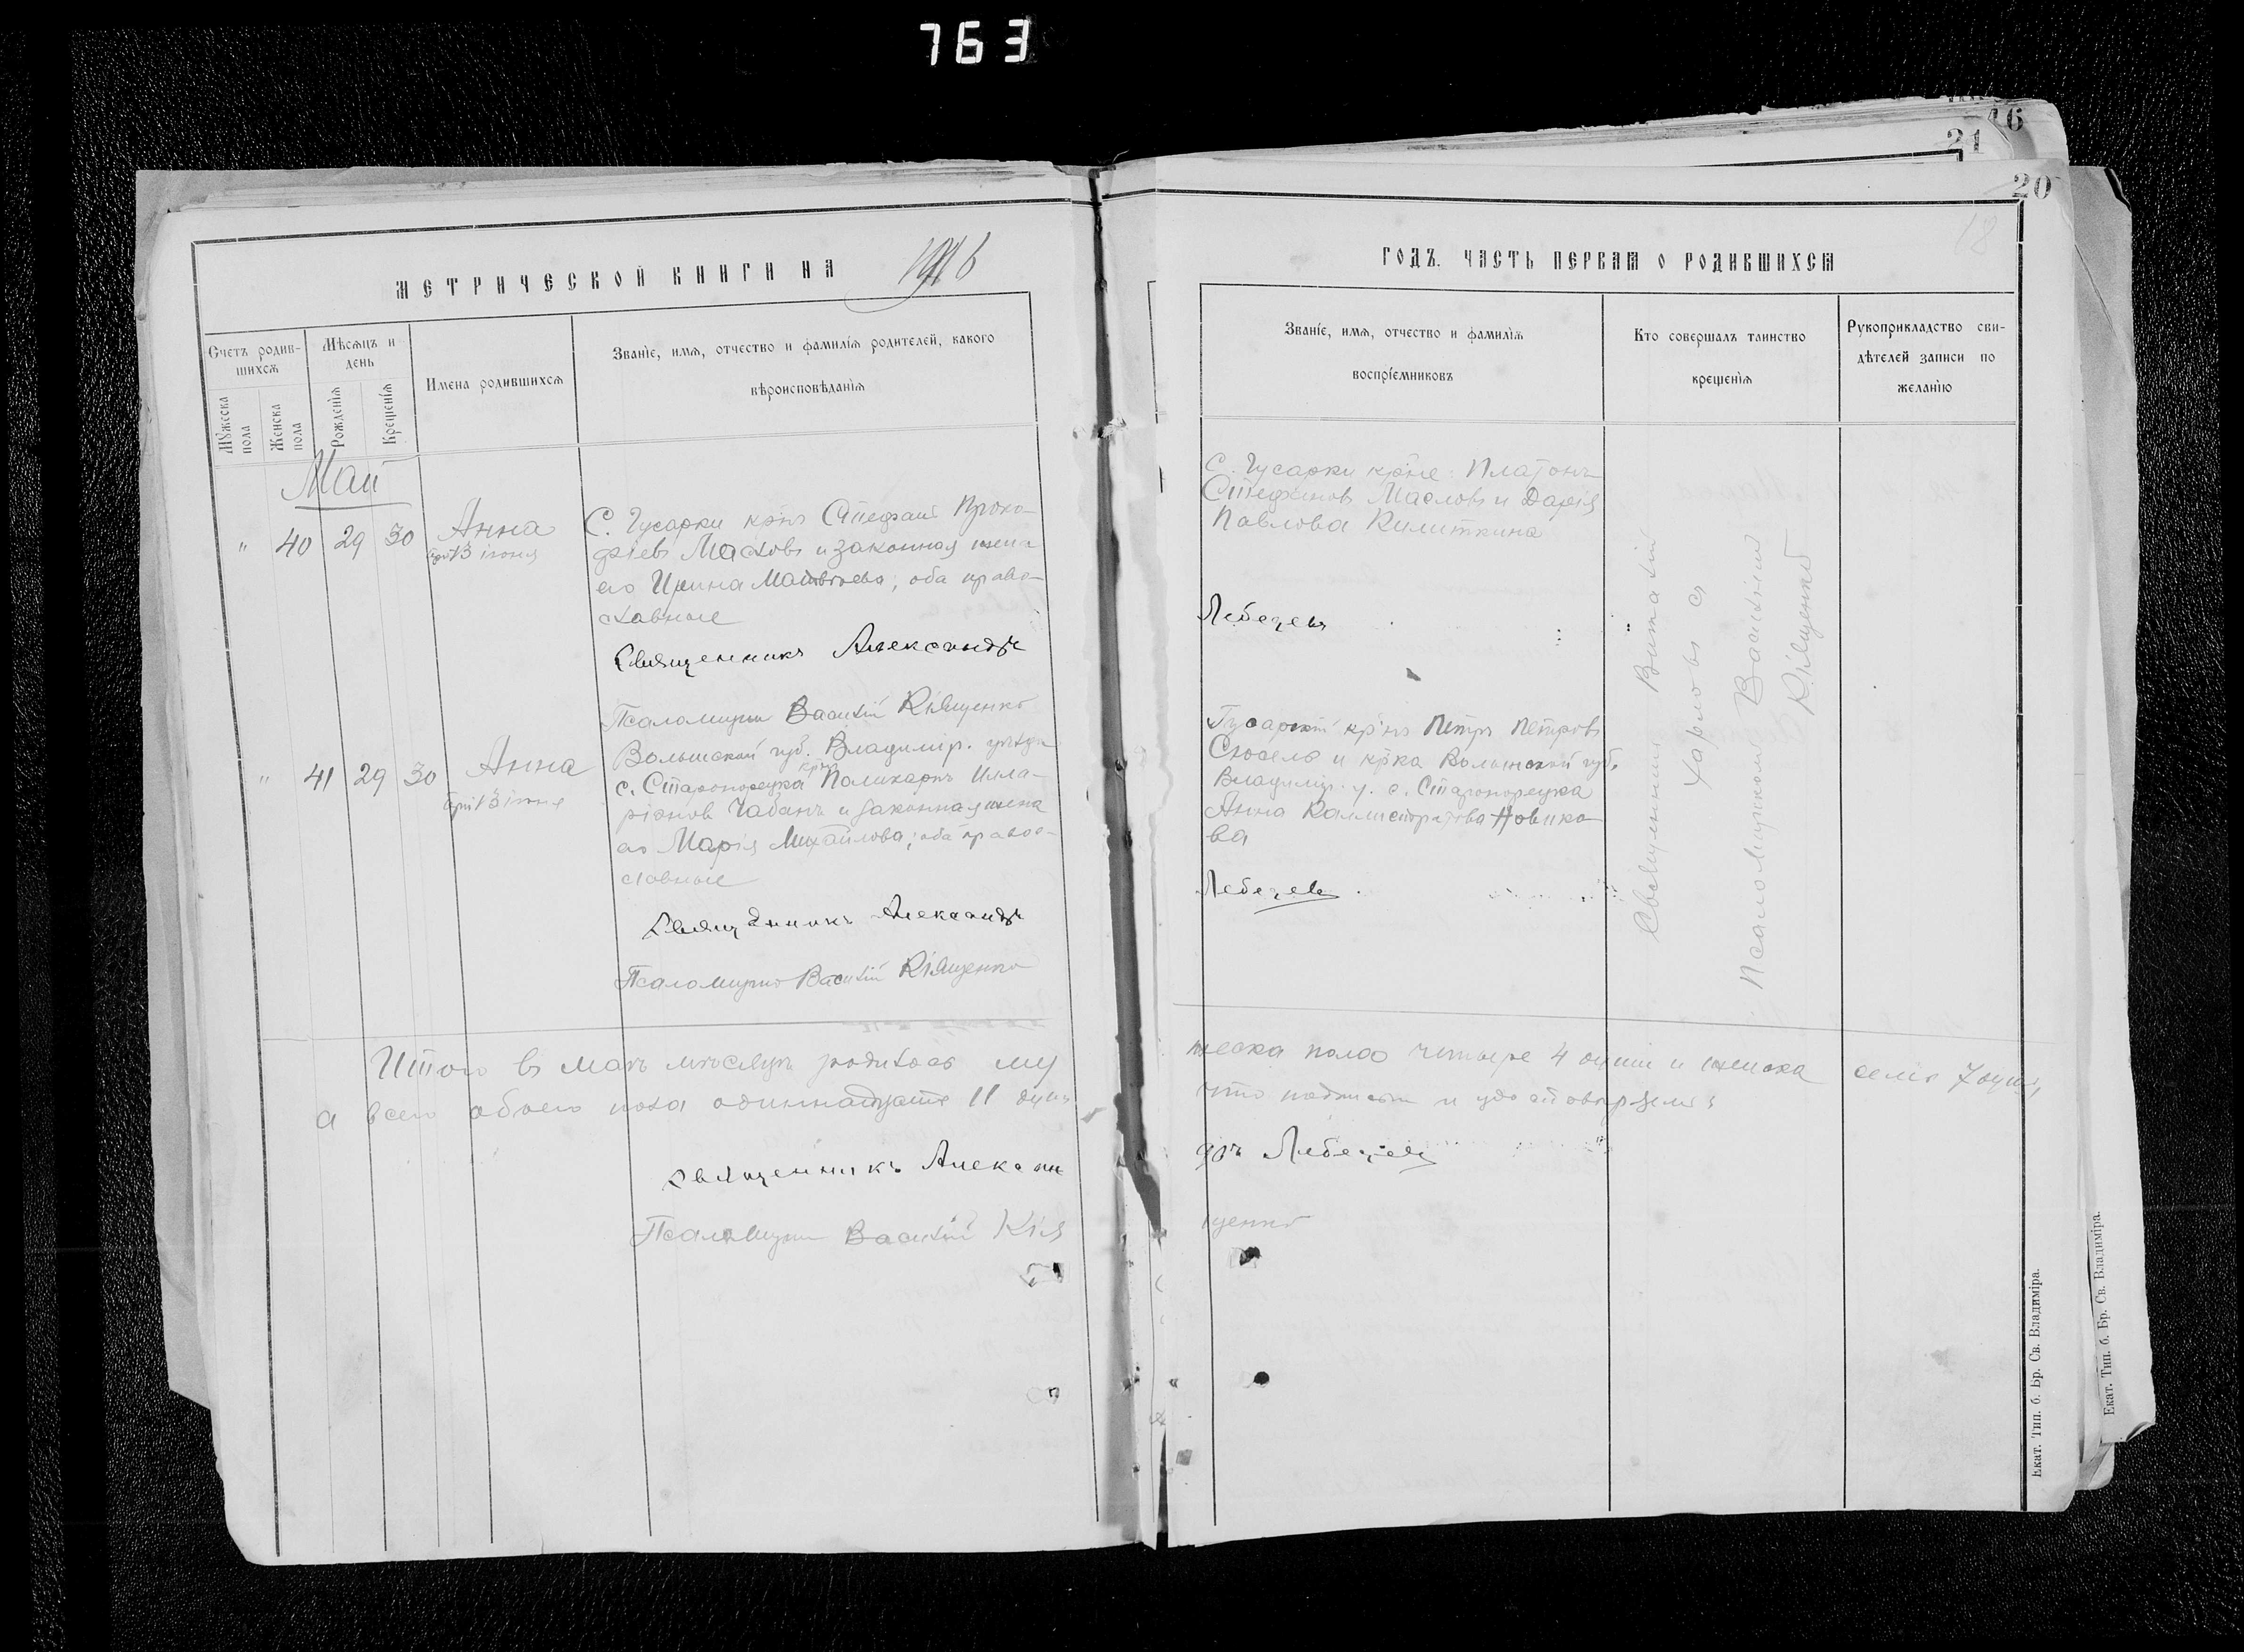 763
46
21
20
18
МЕТРИЧЕСКОЙ КНИГИ НА 1916
ГОДЪ. ЧАСТЬ ПЕРВАЯ О РОДИВШИХСЯ
Счетъ родив-
шихся
Мѣсяцъ и
день
Имена родившихся
Званіе, имя, отчество и фамилія родителей, какого
вѣроисповѣданія
Мужеска
пола
Женска
пола
Рожденія
Крещенія
Званіе, имя, отчество и фамилія
воспріемниковъ
Кто совершалъ таинство
крещенія
Рукоприкладство сви-
дѣтелей записи по
желанію
Май
" 40 29 30 Анна
13 іюня
С. Гусарки кр-нъ Стефанъ Проко-
фіевъ Масловъ и законная жена
его Ирина Матвѣева; оба право-
славные
Священникъ Александръ
Псаломщикъ Василій Кіященко
С. Гусарки кр-не: Платонъ
Стефановъ Масловъ и Дарія
Павлова Килиткина
Лебедевъ
" 41 29 30 Анна
13 іюня
Волынской губ. Владимір. уѣзда
с. Старопорецка кр-нъ Поликарпъ Илла-
ріоновъ Чабанъ и законная жена
его Марія Михайлова; оба право-
славные
Священникъ Александръ
Псаломщикъ Василій Кіященко
Гусарскій кр-нъ Петръ Петровъ
и кр-ка Волынской губ.
Владимір. у. с. Старопорецка
Анна Каллистратова Новико-
ва
Лебедевъ
Священникъ Виталій
Харловъ съ
Псаломщикомъ Василіемъ
Кіященко
Итого въ маѣ мѣсяцѣ родилось му
жеска пола четыре 4 души и женска семь 7 душъ,
а всего обоего пола одиннадцать 11 душъ
что подписью и удостовѣряемъ
Священникъ Алексан
дръ Лебедевъ
Псаломщикъ Василій Кія
щенко
Екат. Тип. б. Бр. Св. Владиміра.
Екат. Тип. б. Бр. Св. Владиміра.